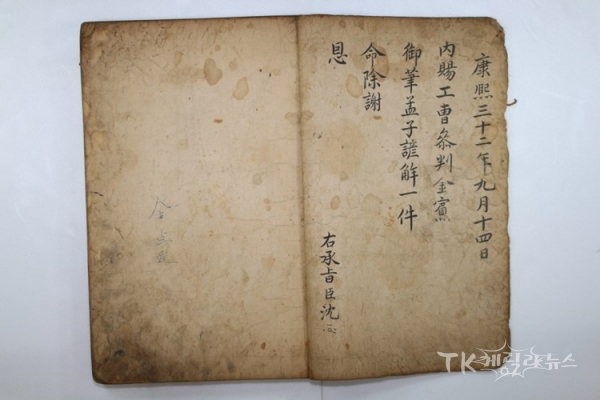 康熙三十二年九月十四日
內賜工曹叅判金賓
御筆孟子諺解一件
命除謝
恩
右承旨臣沈
TK게릴라뉴스